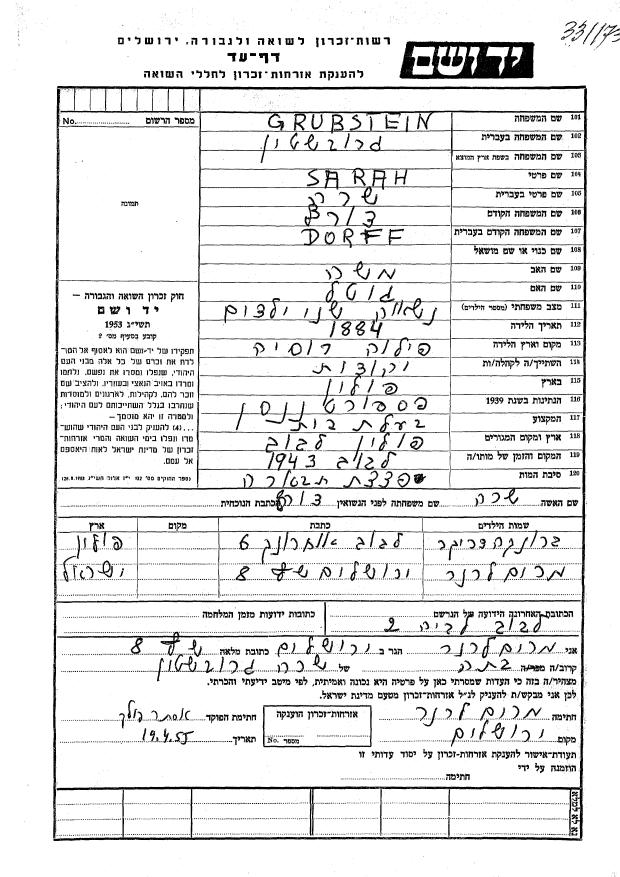 33/173
רשות-זכרון לשואה ולגבורה, ירושלים
יד ושם
דף-עד
להענקת אזרחות-זכרון לחללי השואה
מספר הרשום
No.
תמונה
101 שם המשפחה GRUBSTEIN
102 שם המשפחה בעברית גרובשטיין
103 שם המשפחה בשפת ארץ המוצא
104 שם פרטי SARAH
105 שם פרטי בעברית שרה
106 שם המשפחה הקודם דורף
107 שם המשפחה הקודם בעברית DORFF
108 שם כנוי או שם מושאל
109 שם האב משה
110 שם האם גוטל
111 מצב משפחתי (מספר הילדים) נשואה שני ילדים
112 תאריך הלידה 1884
113 מקום וארץ הלידה רוסיה
114 השתייך/ה לקהלה/ות
115 בארץ פולין
116 הנתינות בשנת 1939 פספורט ננסן
117 המקצוע בעלת בית
118 ארץ ומקום המגורים פולין לבוב
119 המקום והזמן של מותו/ה לבוב 1943
120 סיבת המות פצצת תבערה
חוק זכרון השואה והגבורה –
יד ושם
תשי"ג 1953
קובע בסעיף מס' 2
תפקידו של יד-ושם הוא לאסוף אל המו-
לדת את זכרם של כל אלה מבני העם
היהודי, שנפלו ומסרו את נפשם, נלחמו
ומרדו באויב הנאצי ובעוזריו, ולהציב שם
וזכר להם, לקהילות, לארגונים ולמוסדות
שנחרבו בגלל השתייכותם לעם היהודי;
ולמטרה זו יהא מוסמך –
...(4) להעניק לבני העם היהודי שהוש-
מדו ונפלו בימי השואה והמרי אזרחות-
זכרון של מדינת ישראל לאות היאספם
אל עמם.
שם האשה שרה שם משפחתה לפני הנשואין דורף הכתבת הנוכחית
שמות הילדים כתבת מקום ארץ
לבוב 6 פולין
מרים לרנר ירושלים 8 ישראל
הכתובת האחרונה הידועה של הנרשם לבוב 2
כתובות ידועות מזמן המלחמה
אני מרים לרנר הגר ב ירושלים כתובת מלאה 8
קרוב/ה מכר/ה בתה של שרה גרובשטיין
מצהיר/ה בזה כי העדות שמסרתי כאן על פרטיה היא נכונה ואמיתית, לפי מיטב ידיעתי והכרתי.
לכן אני מבקש/ת להעניק לנ"ל אזרחות-זכרון מטעם מדינת ישראל.
חתימה מרים לרנר
אזרחות-זכרון הוענקה
חתימת הפוקד אסתר
מקום ירושלים
מספר No.
תאריך 19.4.55
תעודת-אישור להענקת אזרחות-זכרון על יסוד עדותי זו
הוזמנה על ידי
חתימה
נא לא למלא